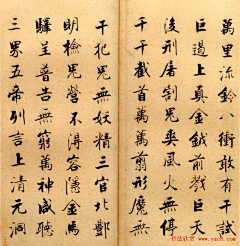 萬里流鈴八衝敢有干試
巨遏上真金鉞前戮巨天
後刑屠割鬼爽風火無停
千千截首萬萬剪形魔無
干犯鬼無妖精三官北酆
明檢鬼營不得容隱金馬
驛呈普告無窮萬神咸聽
三界五帝列言上清元洞
书法欣赏
www.yac8.com